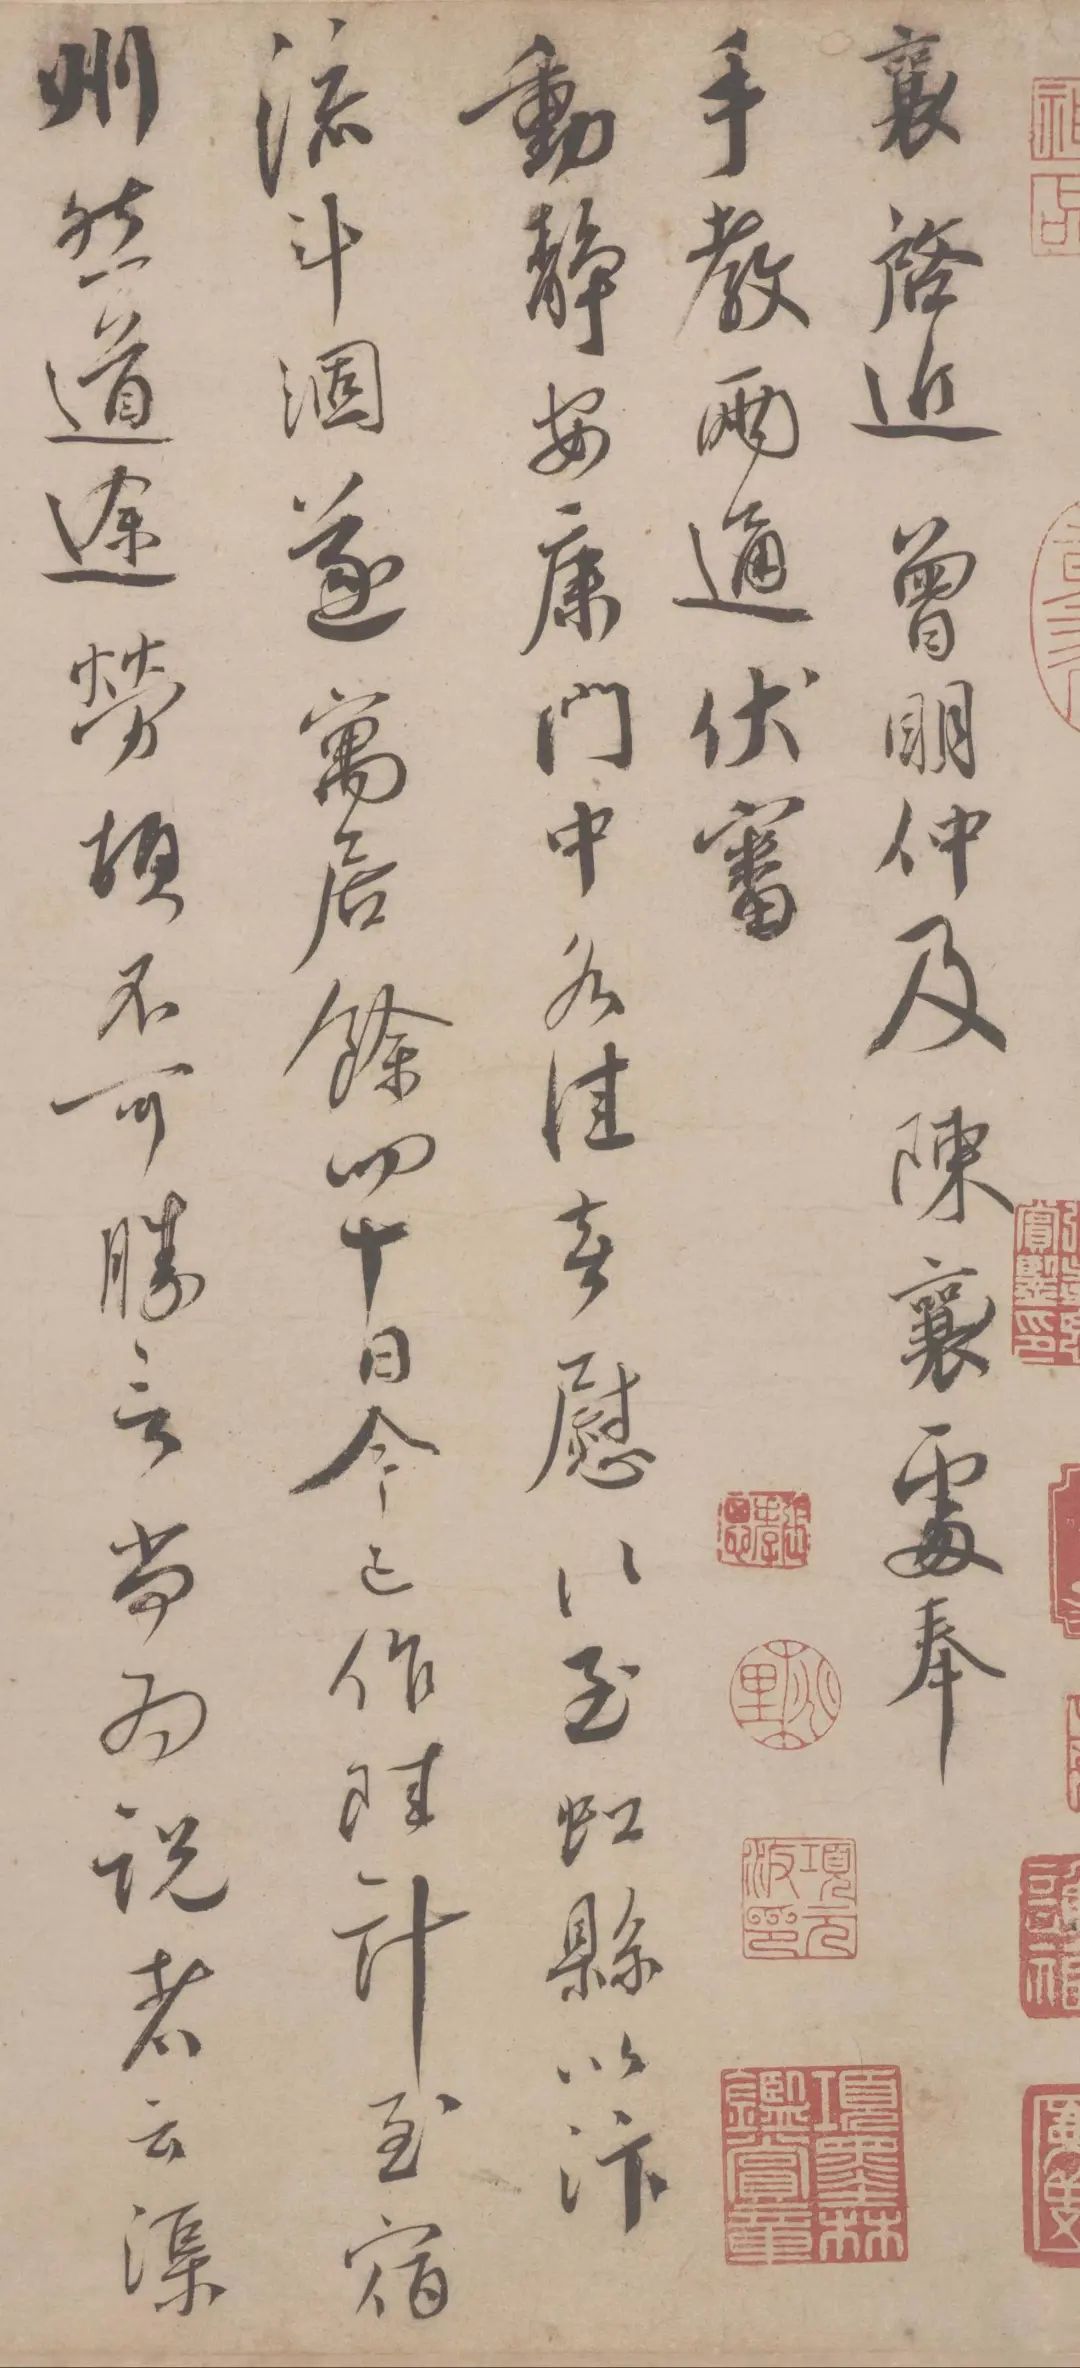 襄啓近曾明仲及陳襄處奉
手教兩通伏審
動靜安康門中各佳喜慰襄至虹縣以汴
流斗涸遂寓居餘四十日今已作陸計至宿
州然道途勞頓不可勝言尚為說者云渠
項元汴印
項墨林鑑賞章